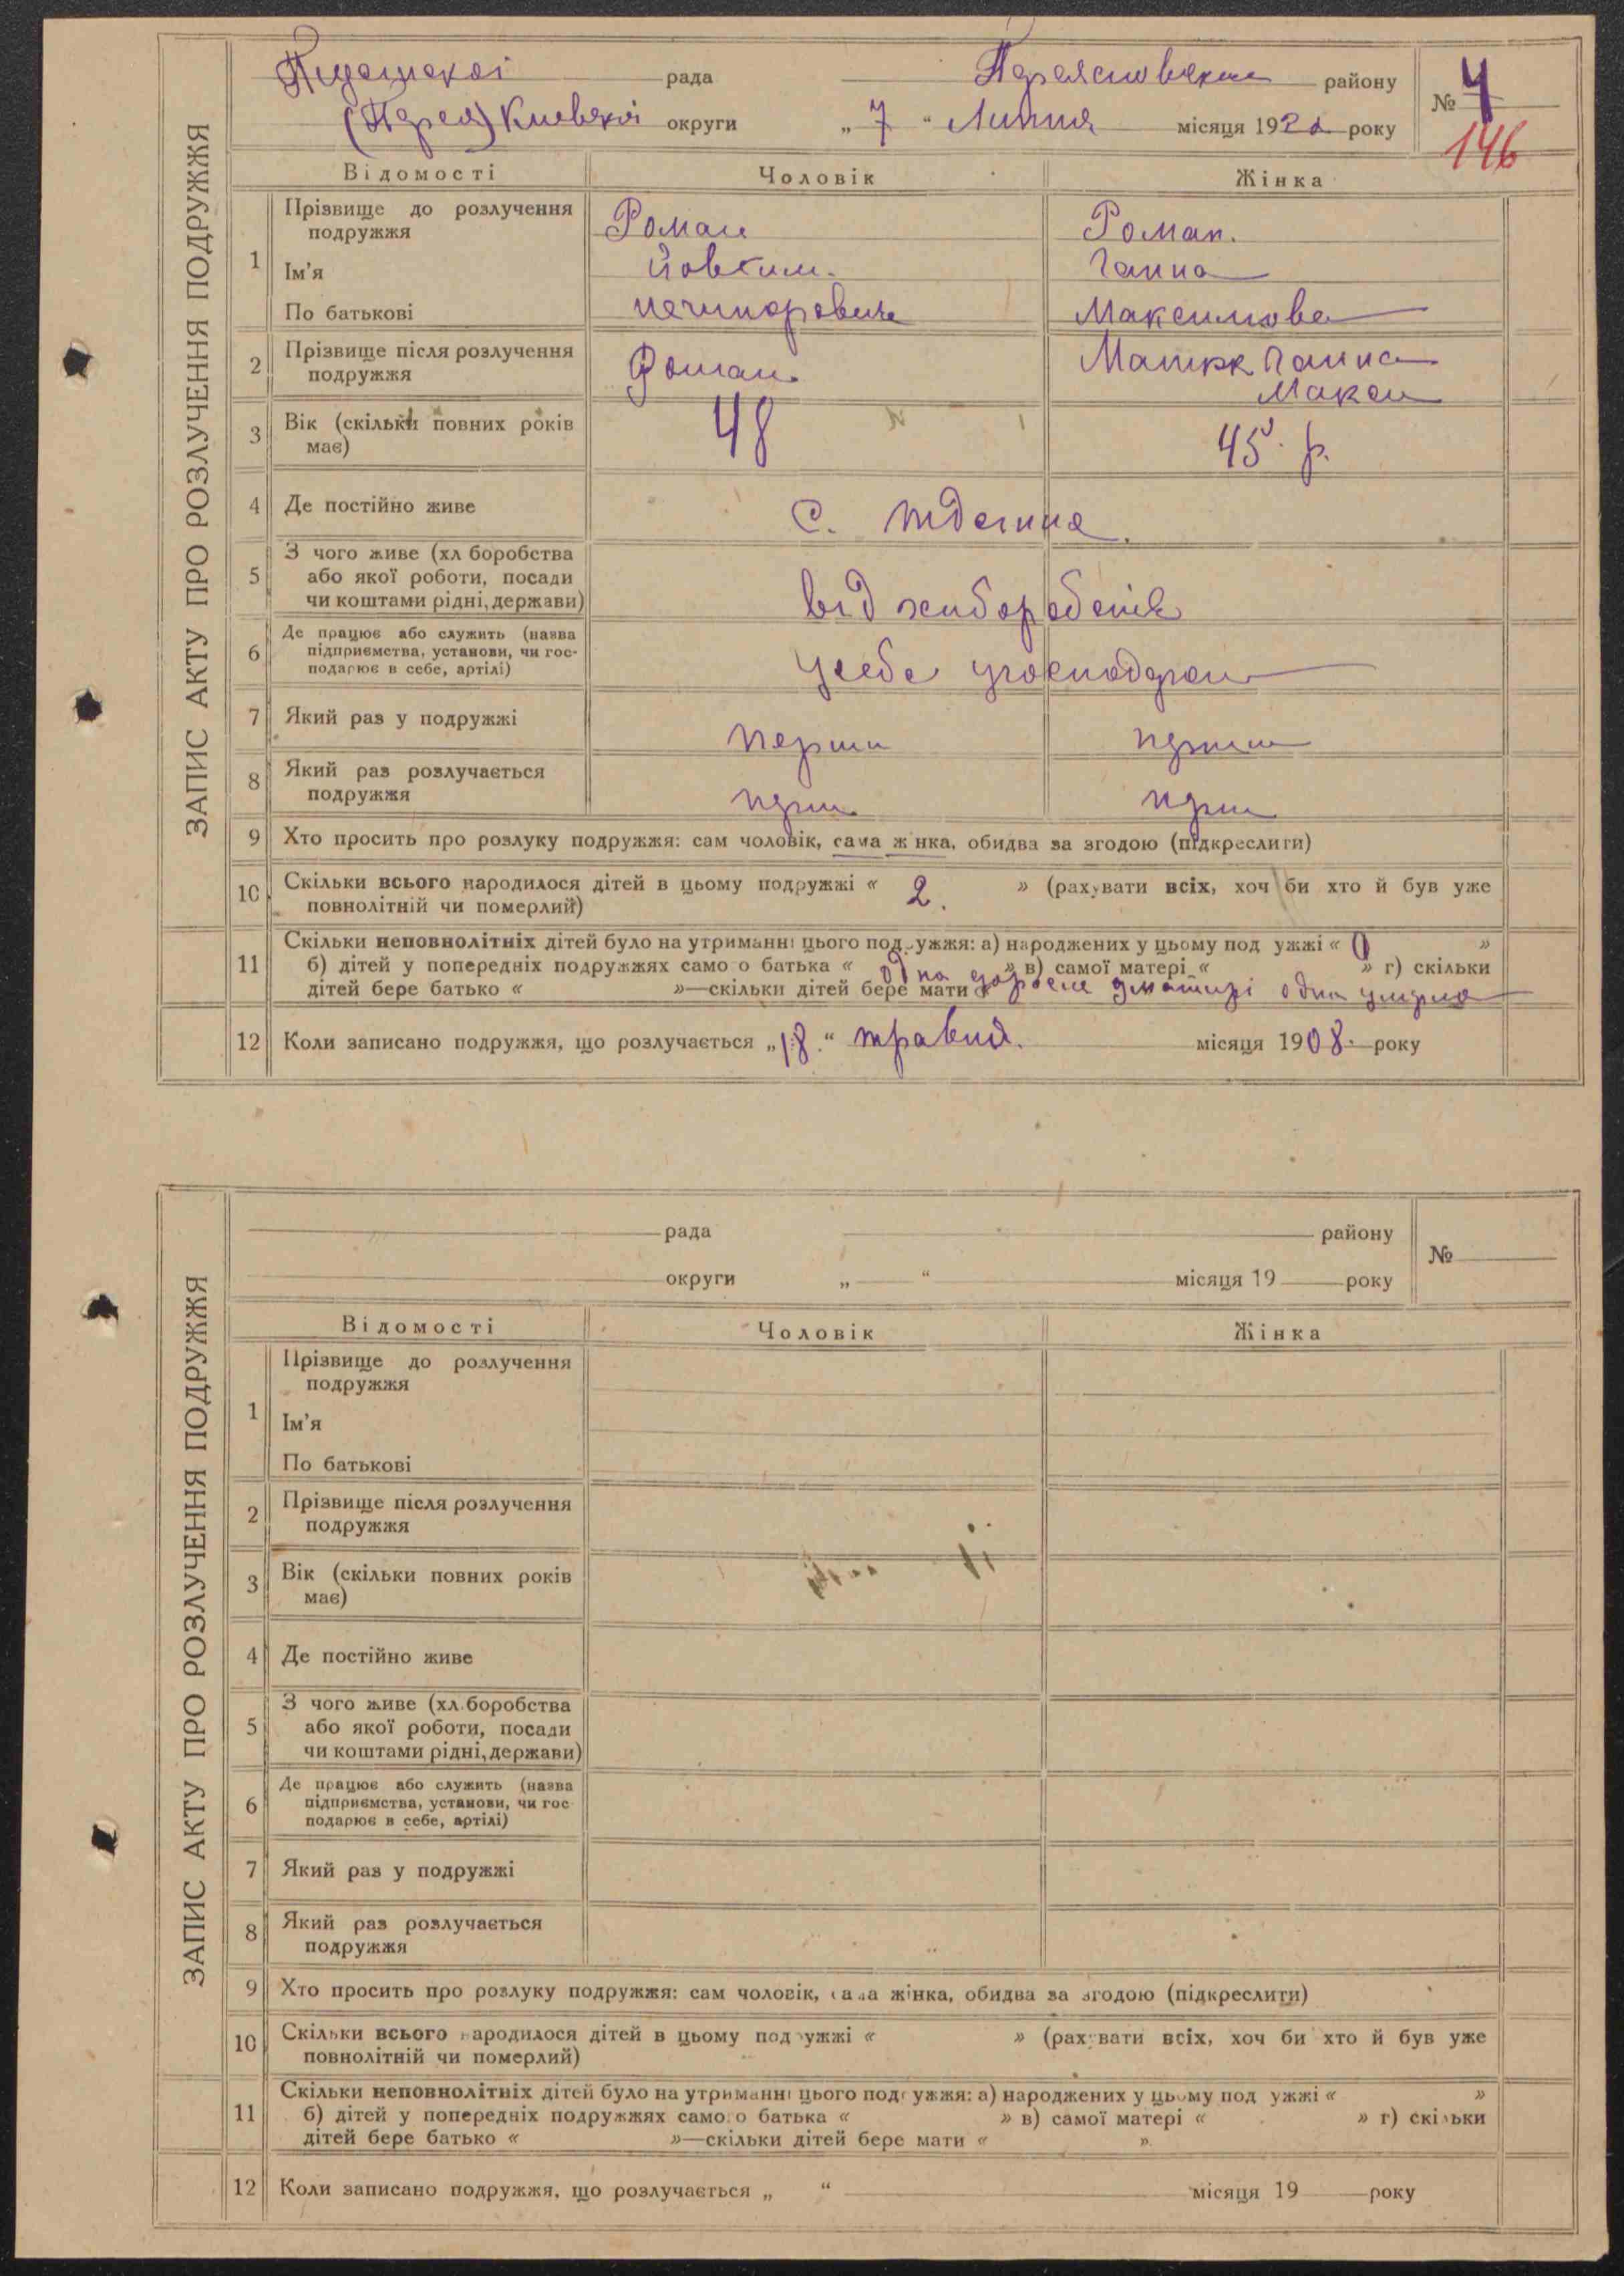 ЗАПИС АКТУ ПРО РОЗЛУЧЕННЯ ПОДРУЖЖЯ
рада Переяславського району
(Перея) Київської округи „ 7 “ Липня місяця 192 року
№ 4
146
Відомості Чоловік Жінка
1 Прізвище до розлучення подружжя Роман Роман.
Ім'я Йовхим. Ганна
По батькові Нечипорович Максимова
2 Прізвище після розлучення подружжя Роман. Ганна
Макси
3 Вік (скільки повних років має) 48 45 р.
4 Де постійно живе с.
5 З чого живе (хл боробства
або якої роботи, посади
чи коштами рідні, держави) від хліборобства
6 Де працює або служить (назва
підприємства, установи, чи гос-
подарює в себе, артілі) у себе у господарст
7 Який раз у подружжі перши перши
8 Який раз розлучається
подружжя перш. перш
9 Хто просить про розлуку подружжя: сам чоловік, сама ж нка, обидва за згодою (підкреслити)
10 Скільки всього народилося дітей в цьому подружжі « 2. » (рахувати всіх, хоч би хто й був уже
повнолітній чи померлий)
11 Скільки неповнолітніх дітей було на утриманні цього подружжя: а) народжених у цьому под ужжі « 0 »
б) дітей у попередніх подружжях само о батька « » в) самої матері « » г) скільки
дітей бере батько « »—скільки дітей бере мати « одна доросла у матирі одна умерла
12 Коли записано подружжя, що розлучається „ 18. “ травня. місяця 1908. року
ЗАПИС АКТУ ПРО РОЗЛУЧЕННЯ ПОДРУЖЖЯ
рада району
округи „ “ місяця 19 року
№
Відомості Чоловік Жінка
1 Прізвище до розлучення
подружжя
Ім'я
По батькові
2 Прізвище після розлучення
подружжя
3 Вік (скільки повних років
має)
4 Де постійно живе
5 З чого живе (хл боробства
або якої роботи, посади
чи коштами рідні, держави)
6 Де працює або служить (назва
підприємства, установи, чи гос-
подарює в себе, артілі)
7 Який раз у подружжі
8 Який раз розлучається
подружжя
9 Хто просить про розлуку подружжя: сам чоловік, сама жінка, обидва за згодою (підкреслити)
10 Скільки всього народилося дітей в цьому подружжі « » (рахувати всіх, хоч би хто й був уже
повнолітній чи померлий)
11 Скільки неповнолітніх дітей було на утриманні цього подружжя: а) народжених у цьому под ужжі « »
б) дітей у попередніх подружжях самого батька « » в) самої матері « » г) скільки
дітей бере батько « »—скільки дітей бере мати « »
12 Коли записано подружжя, що розлучається „ “ місяця 19 року